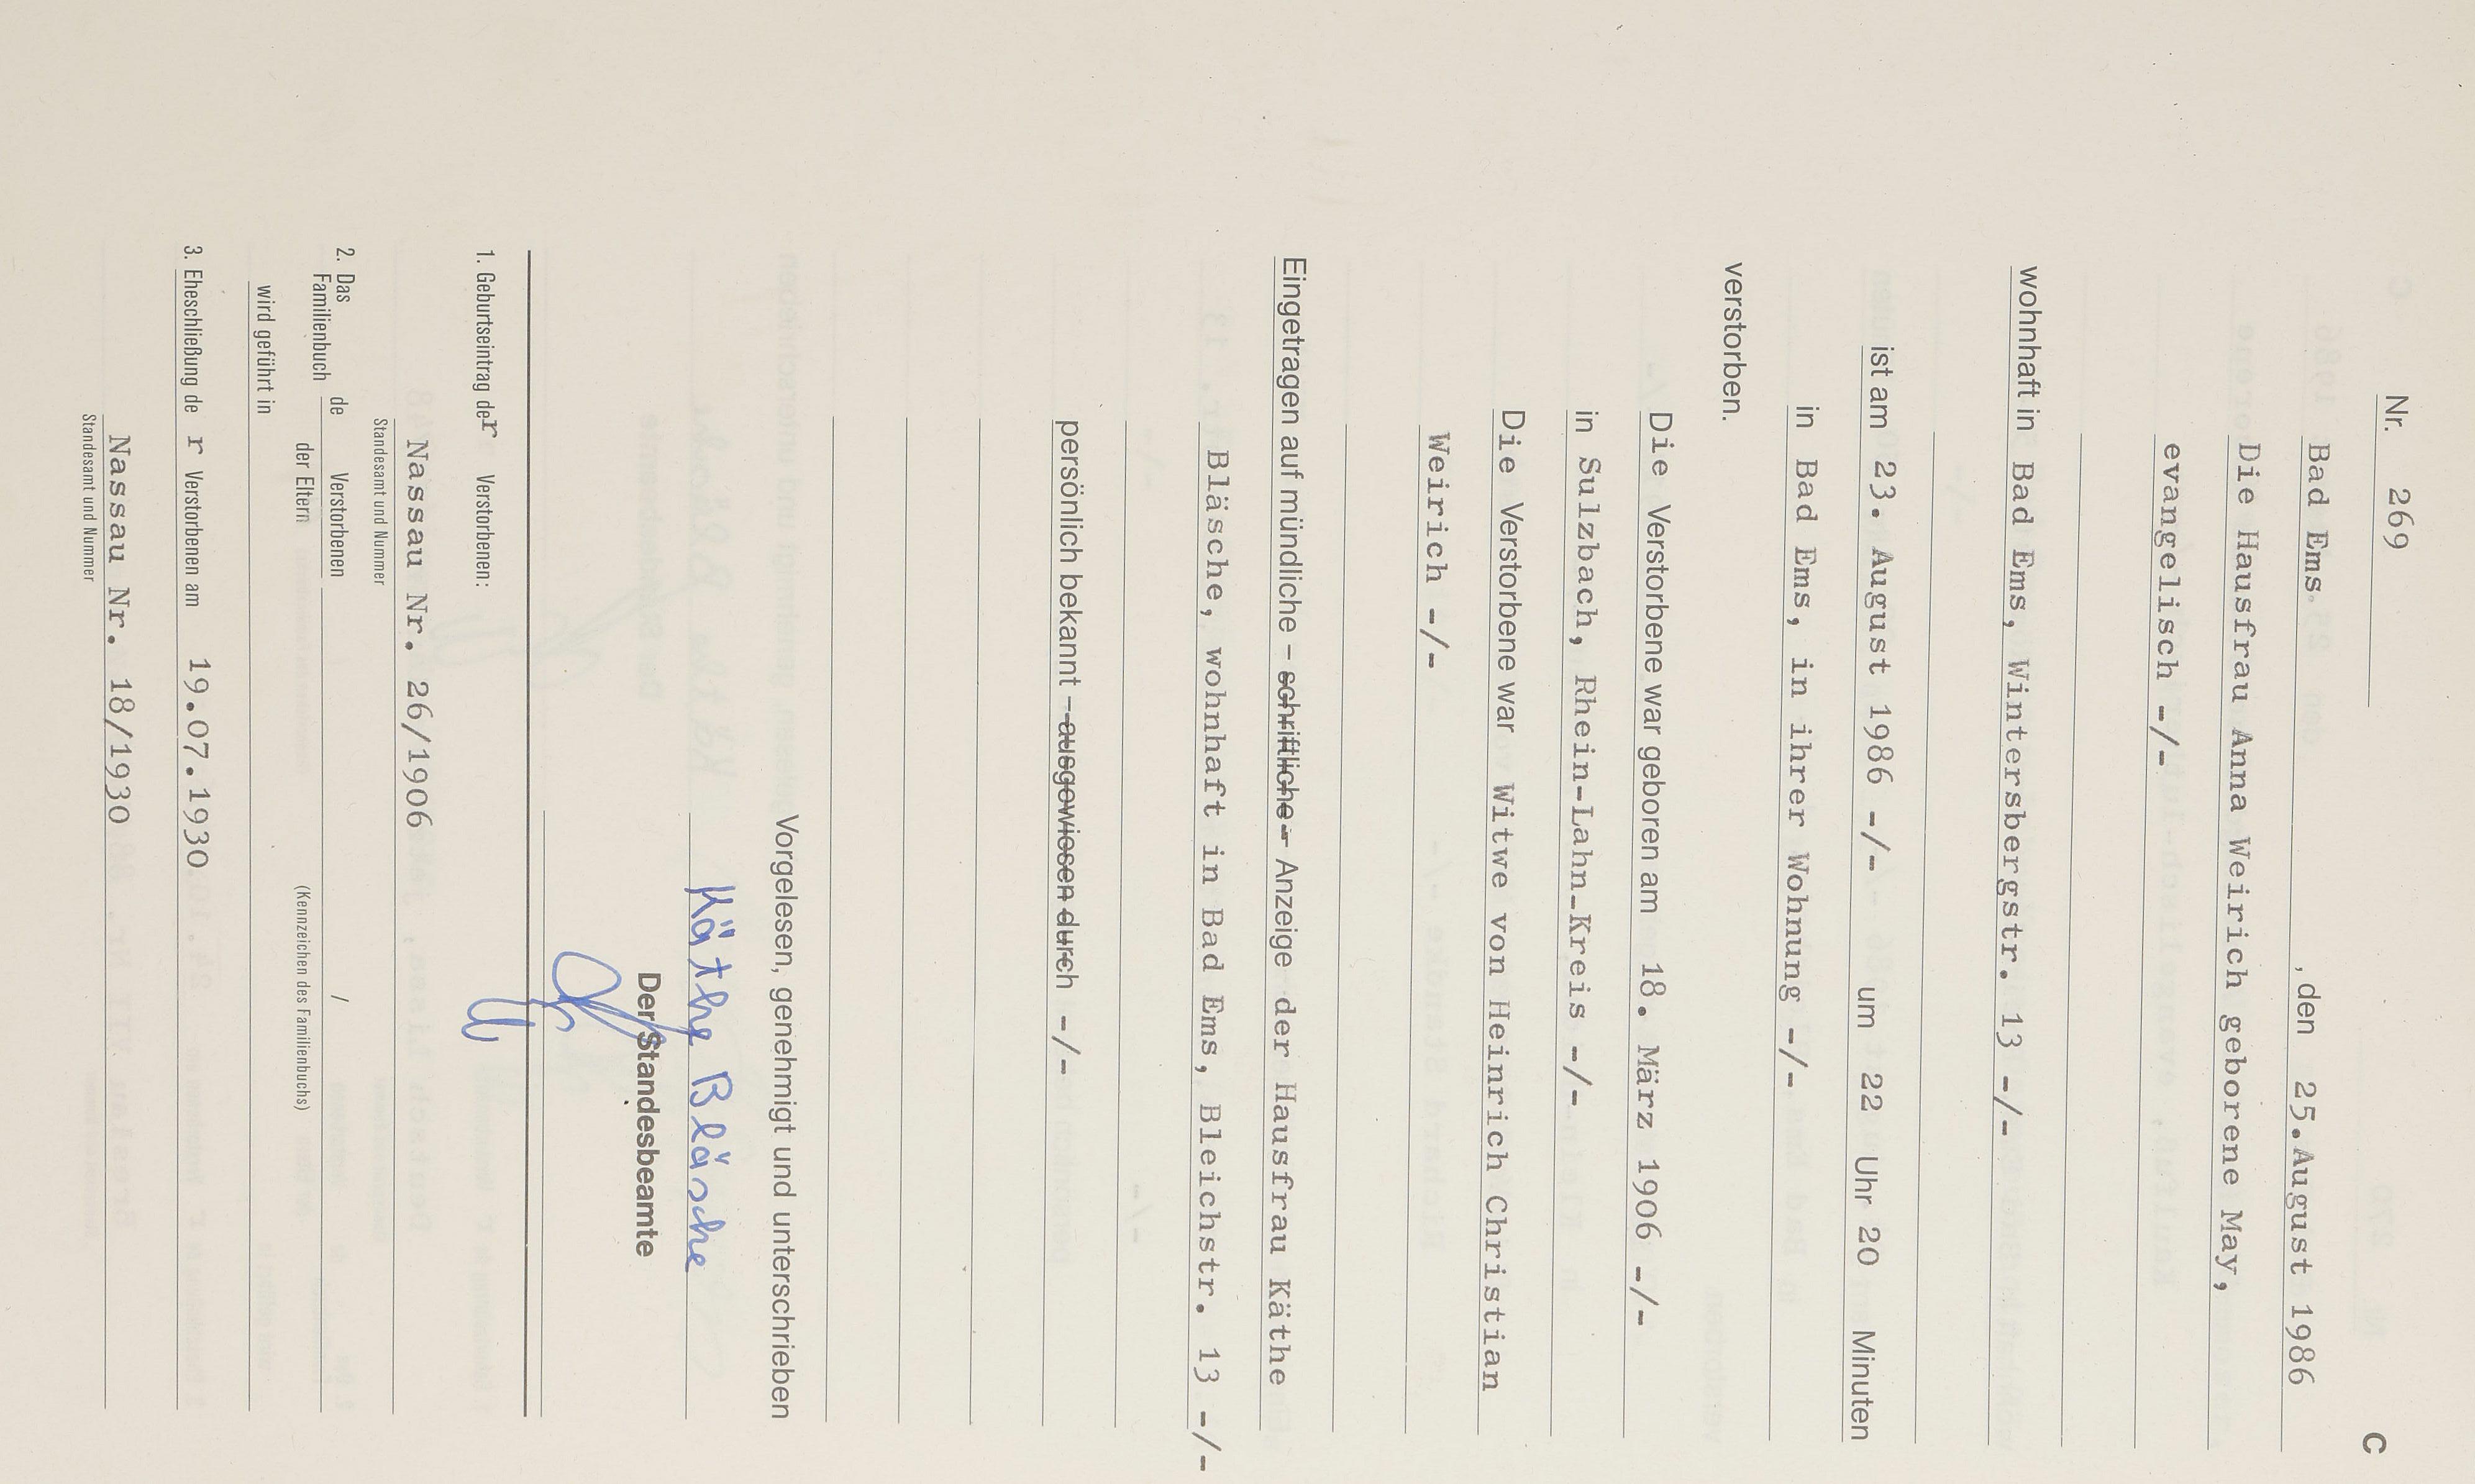 C
Nr. 269
Bad Ems, den 25.August 1986
Die Hausfrau Anna Weirich geborene May,
evangelisch -/-
wohnhaft in Bad Ems, Wintersbergstr. 13 -/-
ist am 23. August 1986 -/- um 22 Uhr 20 Minuten
in Bad Ems, in ihrer Wohnung -/-
verstorben.
Die Verstorbene war geboren am 18. März 1906 -/-
in Sulzbach, Rhein-Lahn-Kreis -/-
Die Verstorbene war Witwe von Heinrich Christian
Weirich -/-
Eingetragen auf mündliche – schriftliche – Anzeige der Hausfrau Käthe
Bläsche, wohnhaft in Bad Ems, Bleichstr. 13 -/-
persönlich bekannt – ausgewiesen durch -/-
Vorgelesen, genehmigt und unterschrieben
Käthe Bläsche
Der Standesbeamte
1. Geburtseintrag der Verstorbenen:
Nassau Nr. 26/1906
Standesamt und Nummer
2. Das Familienbuch de Verstorbenen /
der Eltern (Kennzeichen des Familienbuchs)
wird geführt in
3. Eheschließung de r Verstorbenen am 19.07.1930
Nassau Nr. 18/1930
Standesamt und Nummer